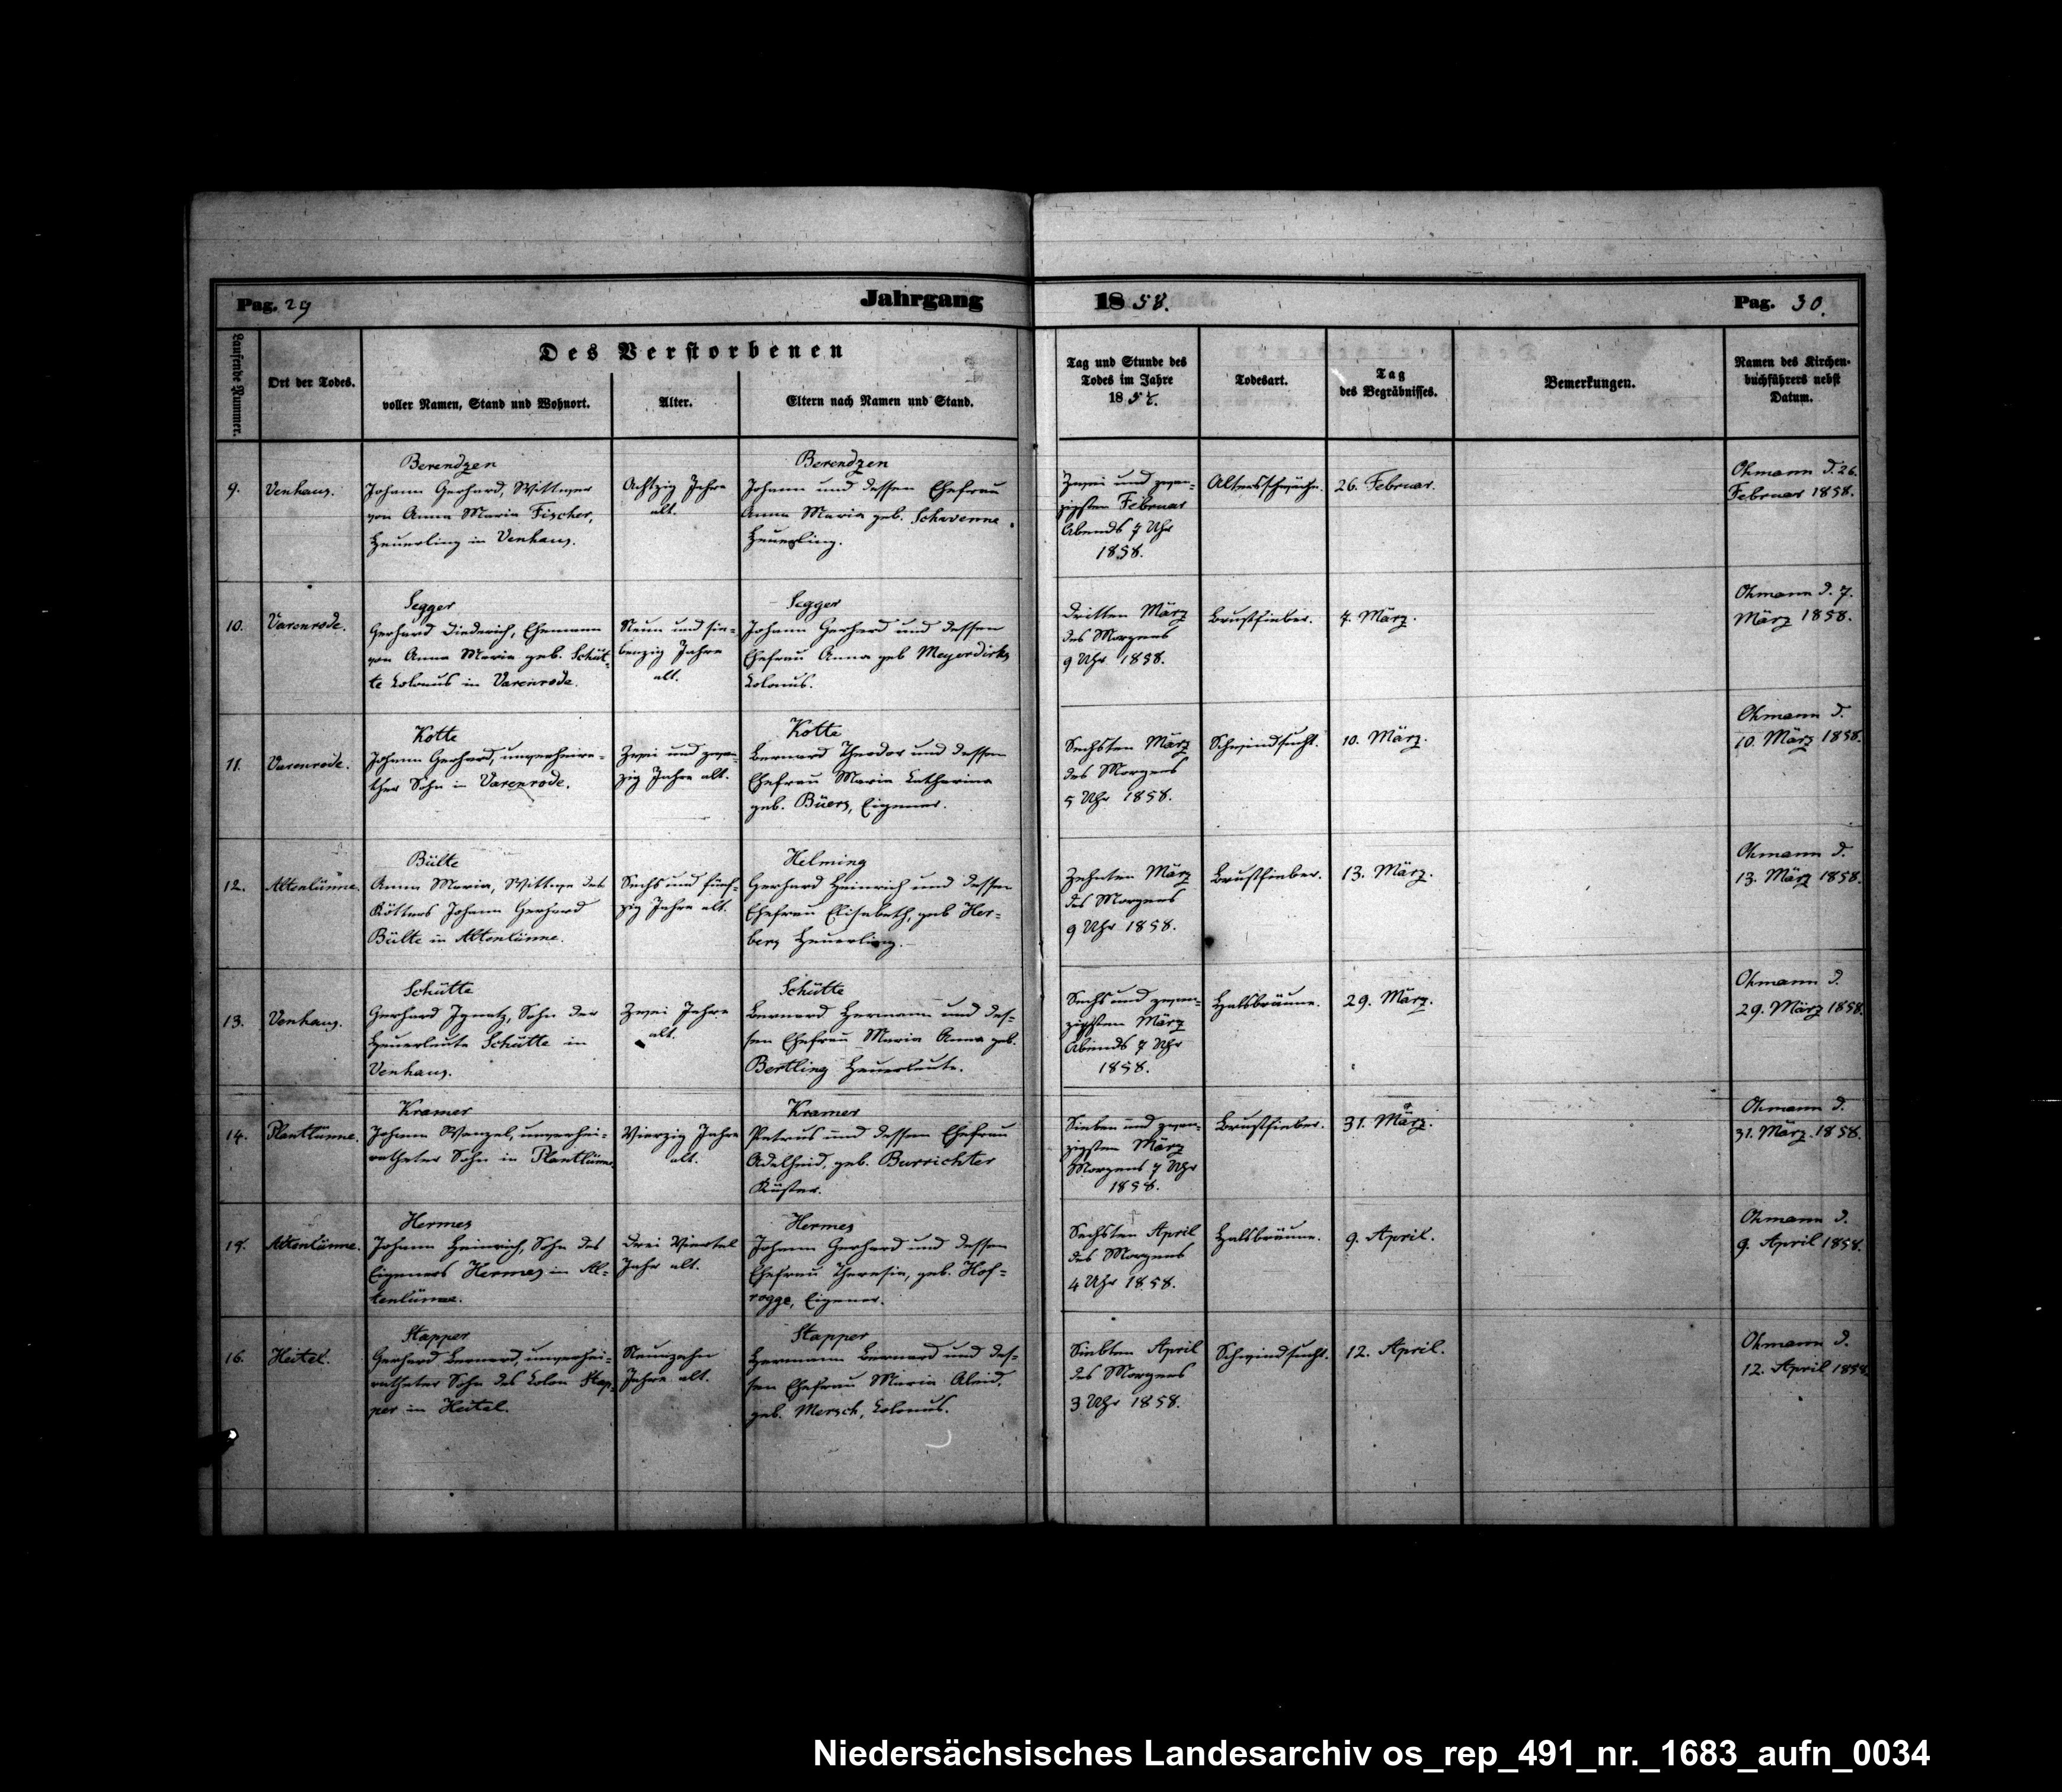 Pag. 29
Jahrgang
1858.
Pag. 30.
Laufende Nummer.
Ort der Todes.
Des Verstorbenen
voller Namen, Stand und Wohnort.
Alter.
Eltern nach Namen und Stand.
Tag und Stunde des
Todes im Jahre
1858.
Todesart.
Tag
des Begräbnisses.
Bemerkungen.
Namen des Kirchen-
buchführers nebst
Datum.
9.
Venhaus.
Berendzen
Johann Gerhard, Wittwer
von Anna Maria Fischer,
Heuerling in Venhaus.
Achtzig Jahre
alt.
Berendzen
Johann und dessen Ehefrau
Anna Maria geb. Schwenne.
Heuerling.
Zwei und zwan-
zigsten Februar
Abends 7 Uhr
1858.
Altersschwäche.
26. Februar.
Ohmann d. 26.
Februar 1858.
10.
Varenrode.
Segger
Gerhard Diederich, Ehemann
von Anna Maria geb. Schüt-
te Colonus in Varenrode.
Neun und sie-
benzig Jahre
alt.
Segger
Johann Gerhard und dessen
Ehefrau Anna geb Meyerdirks
Colonus.
Dritten März
des Morgens
9 Uhr 1858.
Brustfieber.
7. März.
Ohmann d. 7.
März 1858.
11.
Varenrode.
Kotte
Johann Gerhard, unverheira-
theter Sohn in Varenrode.
Zwei und zwan-
zig Jahre alt.
Kotte
Bernard Theodor und dessen
Ehefrau Maria Catharina
geb. Büers, Eigener.
Sechsten März
des Morgens
5 Uhr 1858.
Schwindsucht.
10. März.
Ohmann d.
10. März 1858.
12.
Altenlünne.
Bülte
Anna Maria, Wittwe des
Kötters Johann Gerhard
Bülte in Altenlünne.
Sechs und fünf-
zig Jahre alt.
Helming
Gerhard Heinrich und dessen
Ehefrau Elisabeth, geb Her-
bers Heuerling.
Zehnten März
des Morgens
9 Uhr 1858.
Brustfieber.
13. März.
Ohmann d.
13. März 1858.
13.
Venhaus.
Schütte
Gerhard Ignatz, Sohn der
Heuerleute Schütte in
Venhaus.
Zwei Jahre
alt.
Schütte
Bernard Hermann und des-
sen Ehefrau Maria Anna geb.
Bertling Heuerleute.
Sechs und zwan-
zigsten März
Abends 7 Uhr
1858.
Halsbräune.
29. März.
Ohmann d.
29. März 1858.
14.
Plantlünne.
Kramer
Johann Wenzel, unverhei-
ratheter Sohn in Plantlünne.
Vierzig Jahre
alt.
Kramer
Petrus und dessen Ehefrau
Adelheid, geb. Burrichter
Küster.
Sieben und zwan-
zigsten März
Morgens 7 Uhr
1858.
Brustfieber.
31. März.
Ohmann d.
31. März. 1858.
15.
Altenlünne.
Hermes
Johann Heinrich, Sohn des
Eigeners Hermes in Al-
tenlünne.
Drei Viertel
Jahr alt.
Hermes
Johann Gerhard und dessen
Ehefrau Theresia, geb. Hof-
rogge, Eigener.
Sechsten April
des Morgens
4 Uhr 1858.
Halsbräune.
9. April.
Ohmann d.
9. April 1858.
16.
Heitel.
Stapper
Gerhard Bernard, unverhei-
ratheter Sohn des Colon Stap-
per in Heitel.
Neunzehn
Jahre alt.
Stapper
Hermann Bernard und des-
sen Ehefrau Maria Aleid,
geb. Mersch, Colonus.
Siebten April
des Morgens
3 Uhr 1858.
Schwindsucht.
12. April.
Ohmann d.
12. April 1858.
Niedersächsisches Landesarchiv os_rep_491_nr._1683_aufn_0034